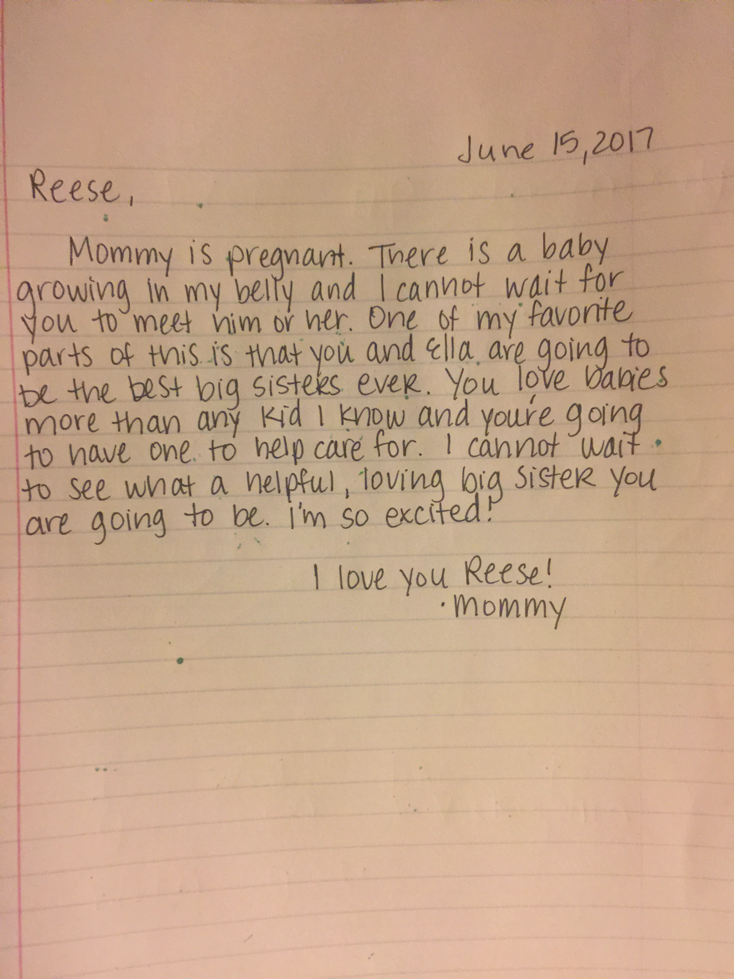 June 15, 2017
Reese,
Mommy is pregnant. There is a baby
growing in my belly and I cannot wait for
you to meet him or her. One of my favorite
parts of this is that you and Ella are going to
be the best big sisters ever. You love babies
more than any kid I know and you're going
to have one to help care for. I cannot wait
to see what a helpful, loving big sister you
are going to be. I'm so excited!
I love you Reese!
·Mommy